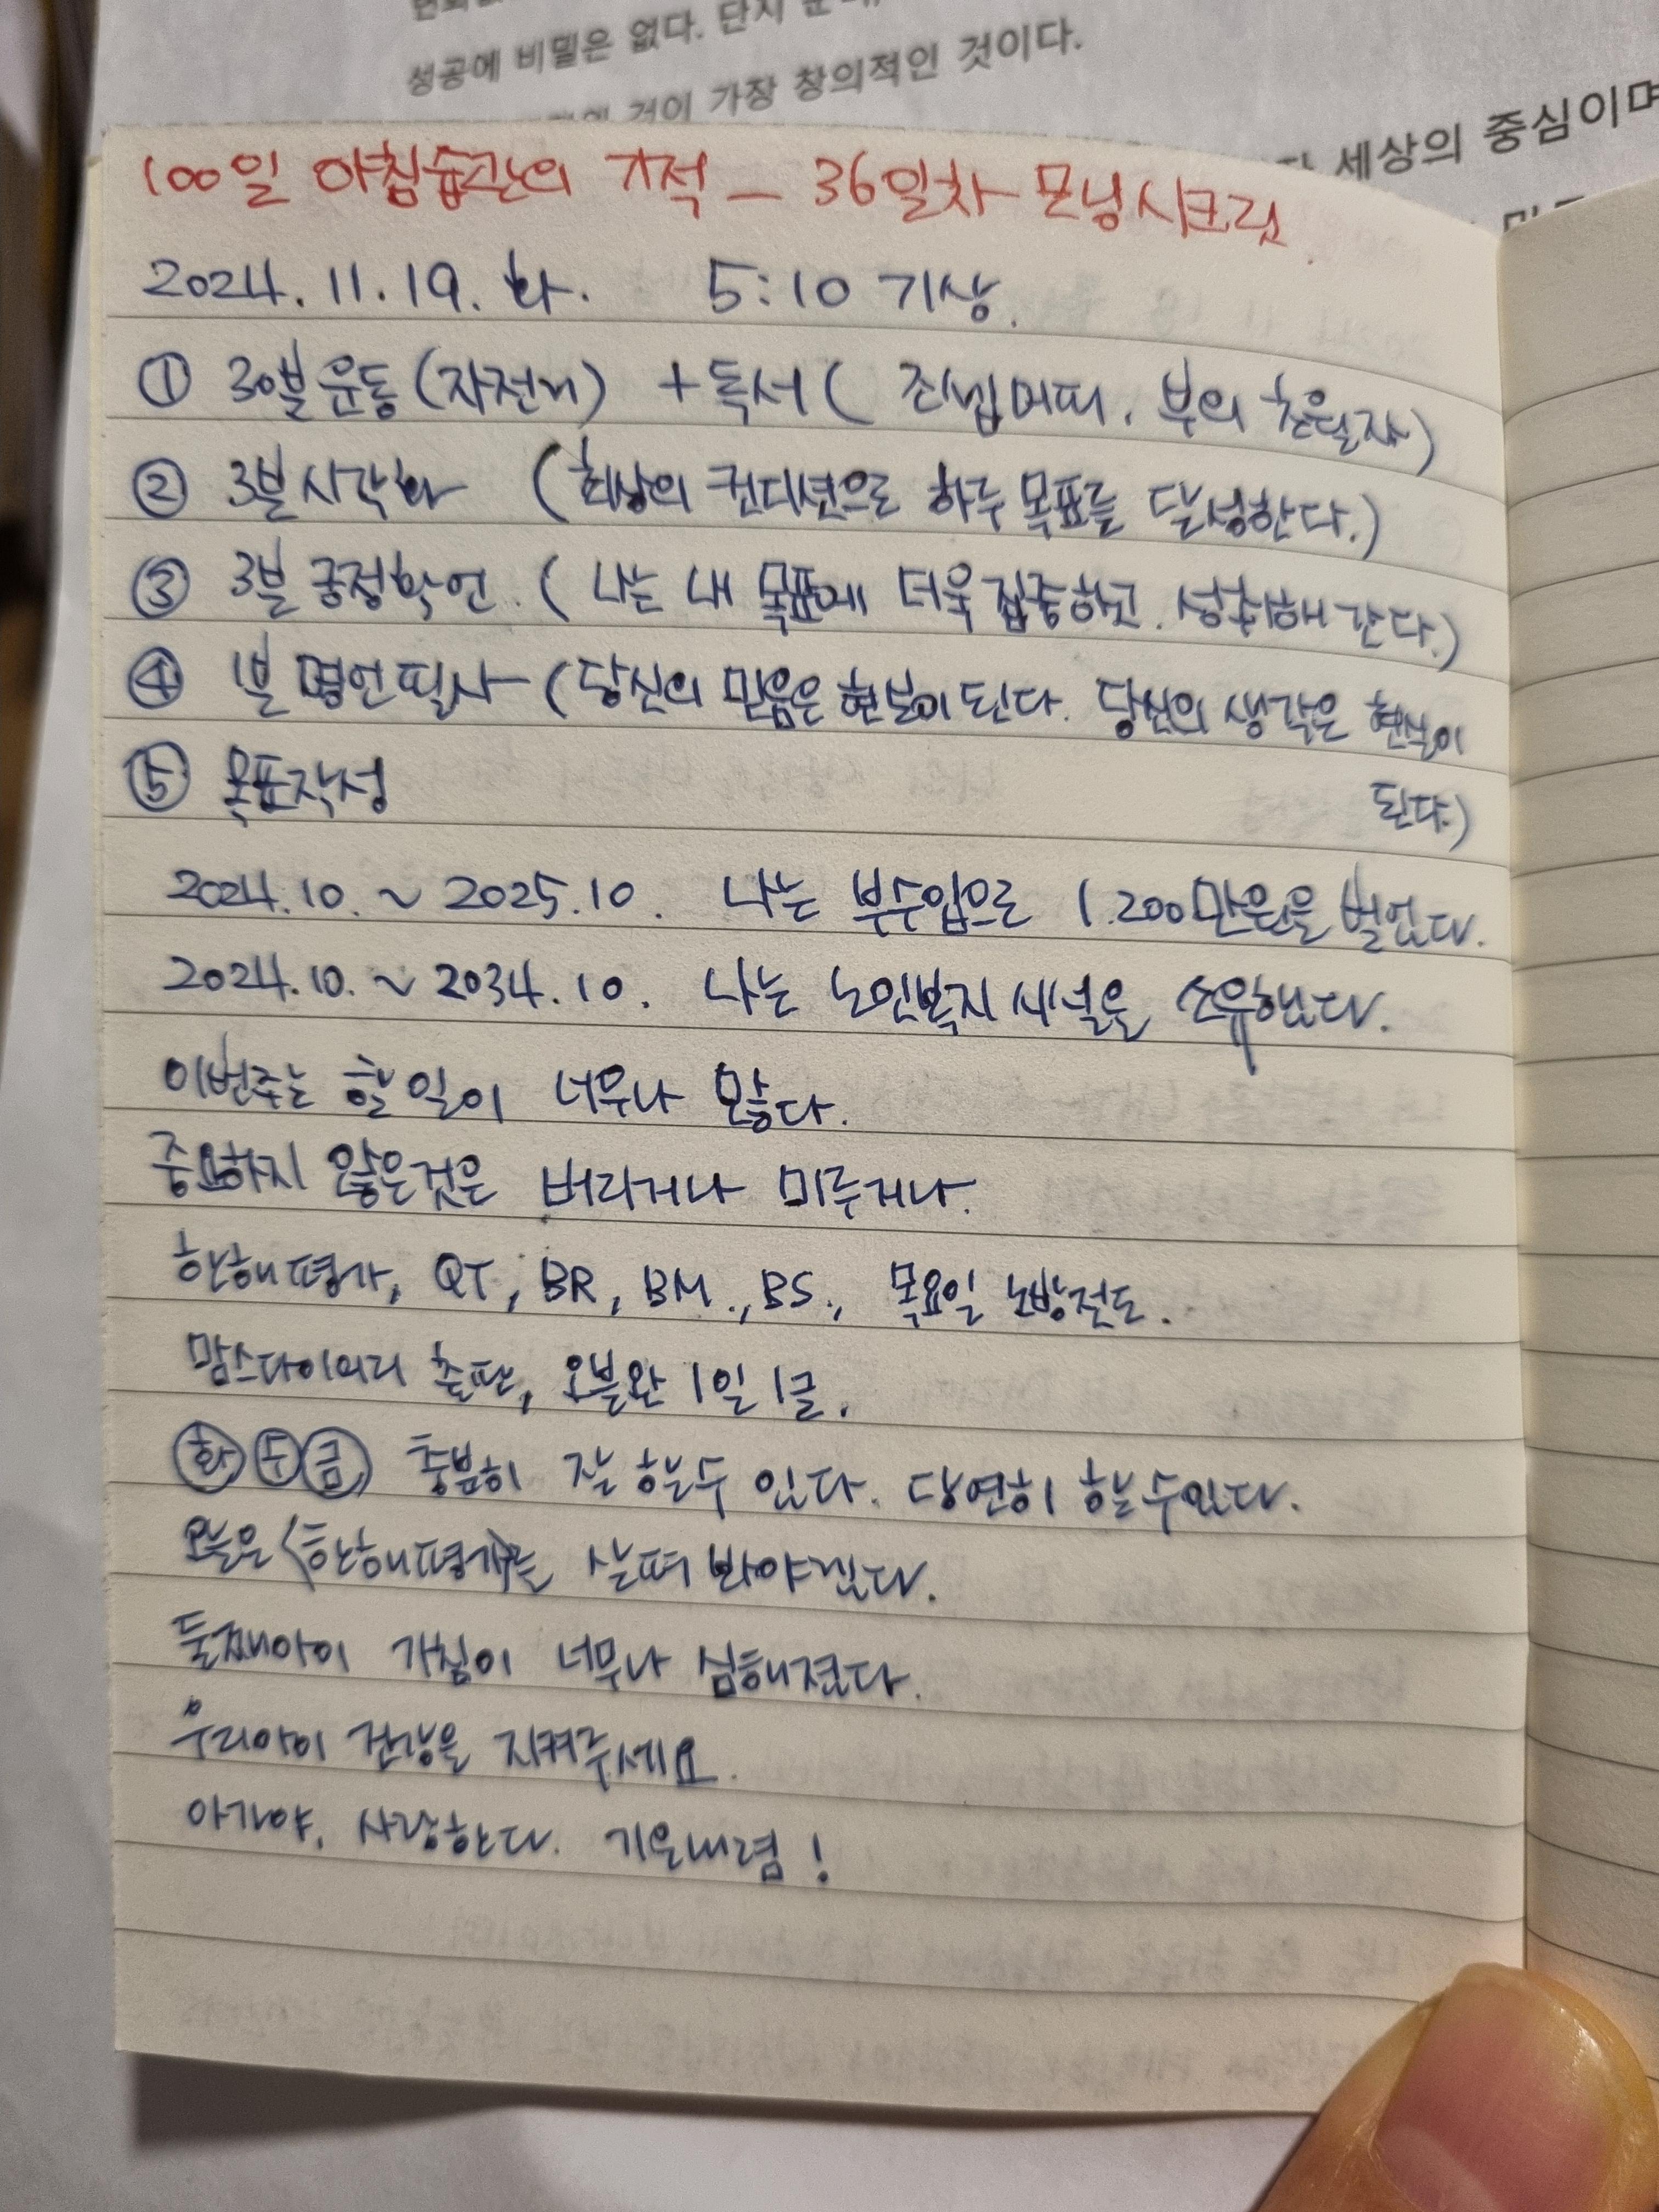 성공에 비밀은 없다. 단지
것이 가장 창의적인 것이다.
세상의 중심이며
100일 아침습관의 기적 - 36일차 모닝시크릿
2024. 11. 19. 화. 5:10 기상.
① 30분 운동(자전거) + 독서( 조셉머피. 부의 초월자)
② 3분 시각화 (최상의 컨디션으로 하루 목표를 달성한다.)
③ 3분 긍정확언. ( 나는 내 목표에 더욱 집중하고. 성취해 간다.)
④ 1분 명언필사 - (당신의 믿음은 현실이 된다. 당신의 생각은 현실이
된다.)
⑤ 목표작성
2024.10. ~ 2025.10. 나는 부수입으로 1.200만원을 벌었다.
2024.10. ~ 2034.10. 나는 노인복지 시설을 소유했다.
이번주는 할 일이 너무나 많다.
중요하지 않은것은 버리거나 미루거나.
한해평가, QT, BR, BM., BS., 목요일 노방전도.
맘스다이어리 출판, 오블완 1일 1글.
화 수 금 충분히 잘 할 수 있다. 당연히 할 수 있다.
오늘은 <한해평가>를 살펴 봐야겠다.
둘째아이 기침이 너무나 심해졌다.
우리아이 건강을 지켜주세요.
아가야, 사랑한다. 기운내렴!